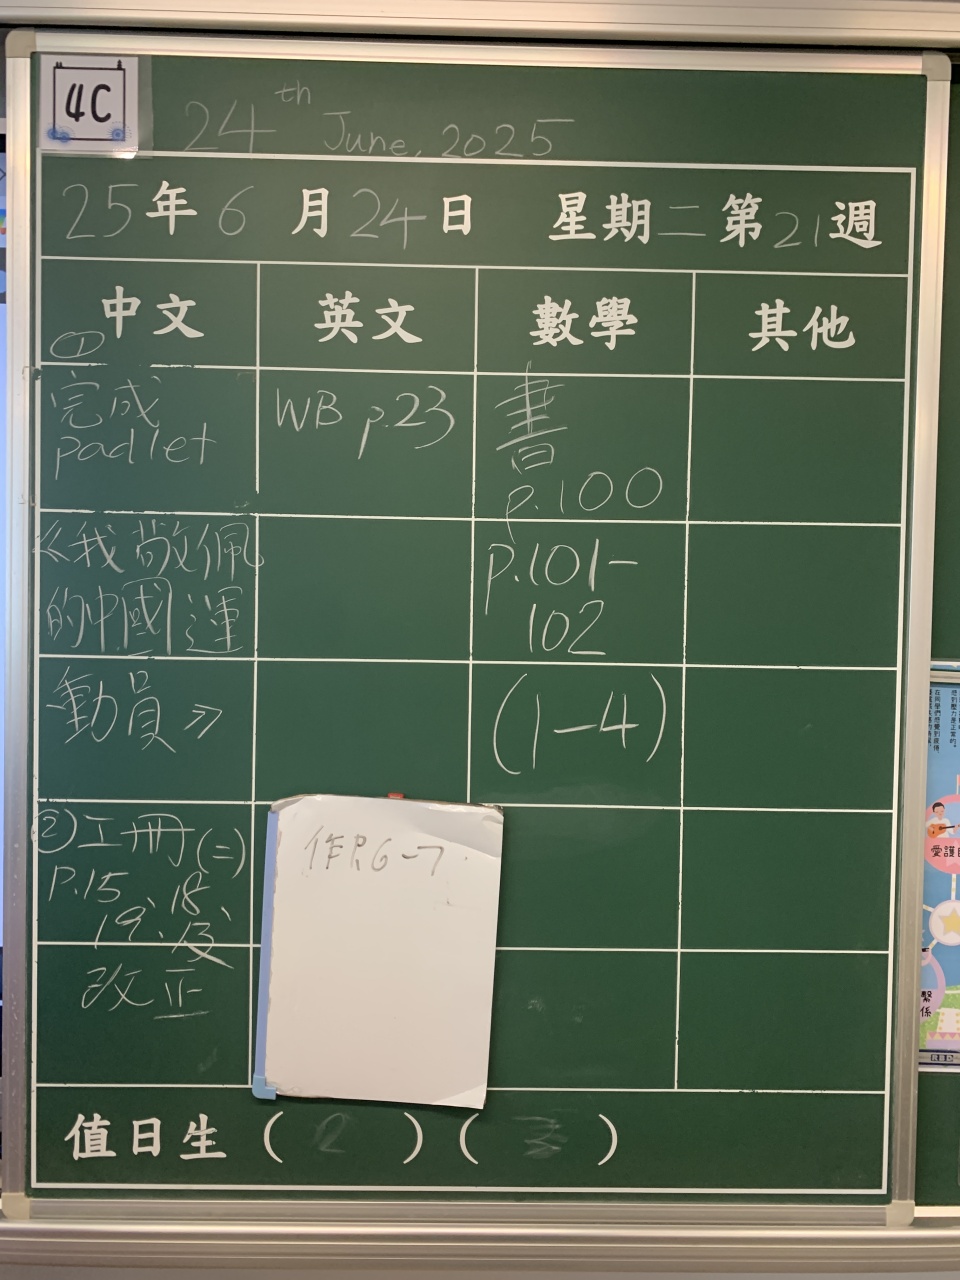 4C
24th June, 2025
25年6月24日 星期二第21週
中文 英文 數學 其他
①
完成
padlet
WB p.23
書
p.100
《我敬佩
的中國運
動員》
p.101-
102
(1-4)
②工冊(二)
P.15、18、
19、及
改正
作P.6-7
值日生 ( 2 ) ( 3 )
愛護
繫
係
RED